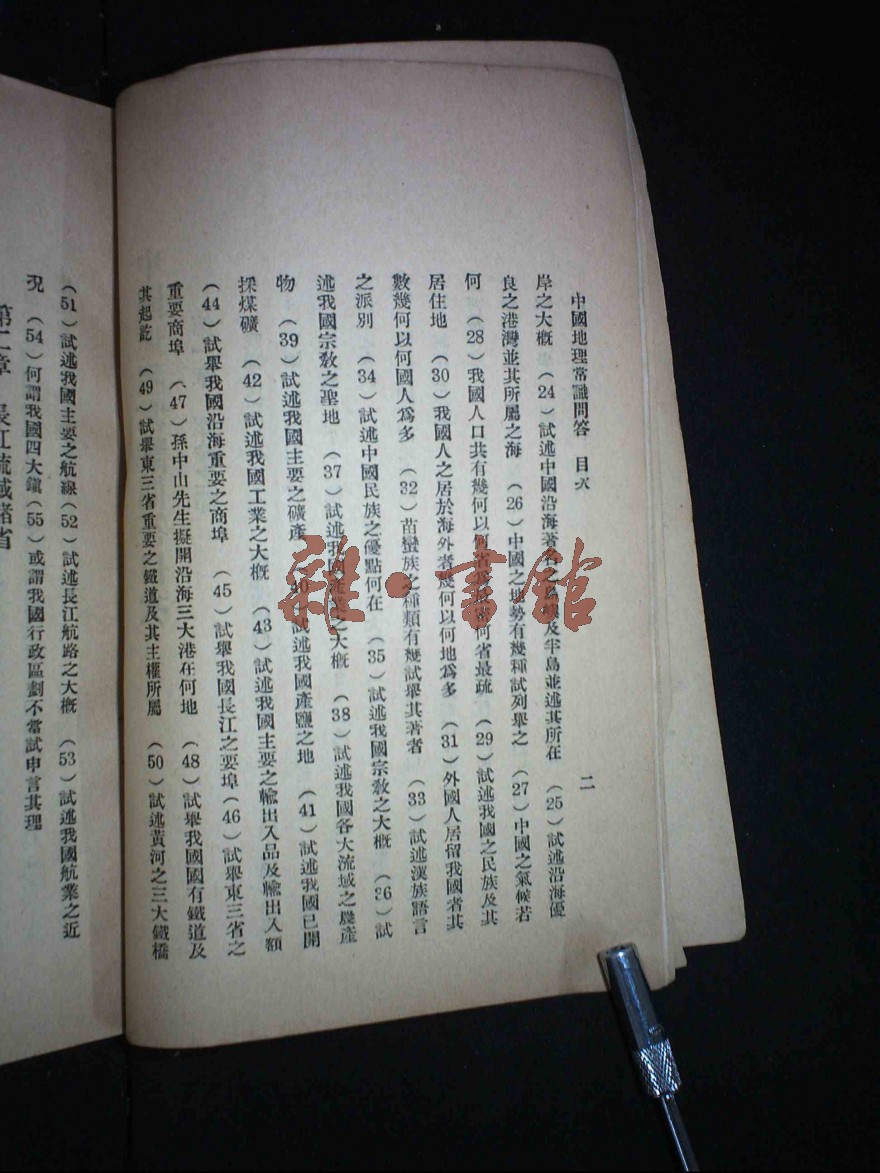 中國地理常識問答 目次 二
岸之大概 (24)試述中國沿海著名之島嶼及半島並述其所在 (25)試述沿海優
良之港灣並其所屬之海 (26)中國之地勢有幾種試列舉之 (27)中國之氣候若
何 (28)我國人口共有幾何以何省爲最密何省最疏 (29)試述我國之民族及其
居住地 (30)我國人之居於海外者幾何以何地爲多 (31)外國人居留我國者其
數幾何以何國人爲多 (32)苗蠻族之種類有幾試舉其著者 (33)試述漢族語言
之派別 (34)試述中國民族之優點何在 (35)試述我國宗敎之大概 (36)試
述我國宗敎之聖地 (37)試述我國產業之大概 (38)試述我國各大流域之農產
物 (39)試述我國主要之礦產 (40)試述我國產鹽之地 (41)試述我國已開
採煤礦 (42)試述我國工業之大槪 (43)試述我國主要之輸出入品及輸出入額
(44)試舉我國沿海重要之商埠 (45)試舉我國長江之要埠 (46)試舉東三省之
重要商埠 (47)孫中山先生擬開沿海三大港在何地 (48)試舉我國國有鐵道及
其起訖 (49)試舉東三省重要之鐵道及其主權所屬 (50)試述黃河之三大鐵橋
(51)試述我國主要之航線 (52)試述長江航路之大槪 (53)試述我國航業之近
況 (54)何謂我國四大鎭 (55)或謂我國行政區劃不當試申言其理
第二章 長江流域諸省
雜·書館